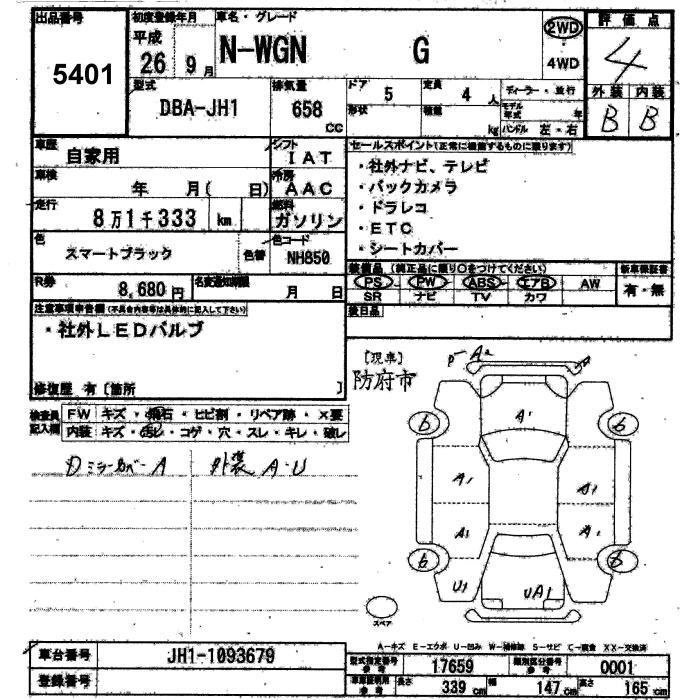 出品番号 初度登録年月 車名・グレード 評価点
5401 平成 26 9月 N-WGN G 2WD 4WD 4
型式 DBA-JH1 排気量 658 cc ドア 5 定員 4 人
形状 積載 kg ハンドル 左・右 年
外装 内装
B B
車歴 自家用 シフト IAT
車検 年 月( 日) 冷房 AAC
走行 8万1千333 km 燃料 ガソリン
色 スマートブラック 色替 色コード NH850
R券 8,680円 名変通知期限 月 日
セールスポイント(正常に機能するものに限ります)
・社外ナビ、テレビ
・バックカメラ
・ドラレコ
・ETC
・シートカバー
装備品 (純正品に限り○をつけてください) 新車保証書
PS PW ABS エアB AW 有・無
SR ナビ TV カワ
後日品
注意事項申告欄(不具合内容等は具体的に記入して下さい)
・社外LEDバルブ
修復歴 有 [箇所 ]
検査員 記入欄
FW キズ・飛石・ヒビ割・リペア跡・×要
内装 キズ・汚レ・コゲ・穴・スレ・キレ・破レ
ミラーカバーA 外装 A・U
[現車]
防府市
A2
A1
6 6
A1 A1
A1 A1
6 6
U1 UA1
スペア
A-キズ E-エクボ U-凹み W-補修跡 S-サビ C-腐食 XX-交換済
車台番号 JH1-1093679
登録番号
型式指定番号 参考 17659 類別区分番号 参考 0001
参考 長さ 339 cm 幅 147 cm 高さ 165 cm